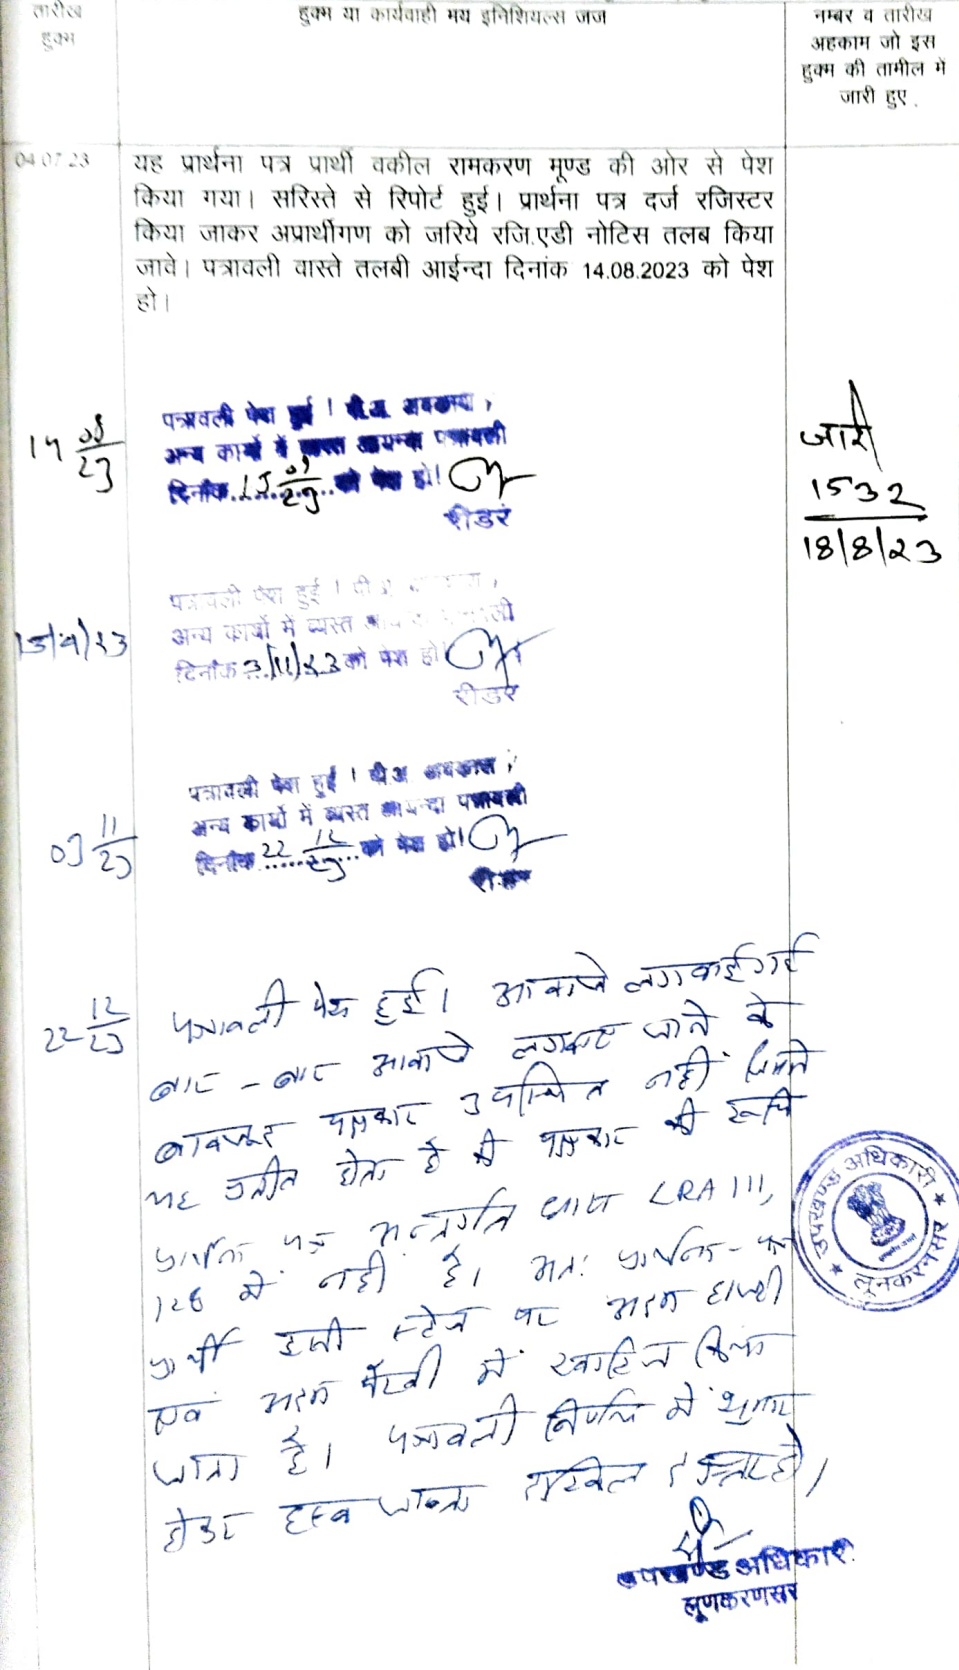 तारीख
हुक्म
हुक्म या कार्यवाही मय इनिशियल्स जज
नम्बर व तारीख
अहकाम जो इस
हुक्म की तामील में
जारी हुए .
04.07.23
यह प्रार्थना पत्र प्रार्थी वकील रामकरण मूण्ड की ओर से पेश
किया गया। सरिस्ते से रिपोर्ट हुई। प्रार्थना पत्र दर्ज रजिस्टर
किया जाकर अप्रार्थीगण को जरिये रजि.एडी नोटिस तलब किया
जावे। पत्रावली वास्ते तलबी आईन्दा दिनांक 14.08.2023 को पेश
हो।
14 08/23
पत्रावली पेश हुई । पी.अ. अवकाश ,
अन्य कार्यो में व्यस्त आयन्दा पत्रावली
दिनांक 15 09/23 को पेश हो।
रीडर
जारी
1532
18/8/23
15/9/23
पत्रावली पेश हुई । पी.अ.
अन्य कार्यो में व्यस्त
दिनांक 3/11/23 को पेश हो
रीडर
03 11/23
पत्रावली पेश हुई । पी.अ. अवकाश ,
अन्य कार्यो में व्यस्त आयन्दा पत्रावली
दिनांक 22 12/23 को पेश हो।
रीडर
22 12/23
पत्रावली पेश हुई। आवाजे लगवाई गई
बार - बार आवाजे लगवाए जाने के
बावजूद पक्षकार उपस्थित नहीं जिससे
यह प्रतीत होता है की पक्षकार की रूचि
प्रार्थना पत्र अन्तर्गत धारा LRA 111,
128 में नहीं है। अतः प्रार्थना - पत्र
प्रार्थी इसी स्टेज पर अदम हाजरी
एवं अदम पैरवी में खारिज किया
जाता है। पत्रावली निर्णय में शुमार
होकर हस्ब जाब्ता दाखिल दफ्तर हो।
उपखण्ड अधिकारी
लूनकरनसर
उपखण्ड अधिकारी
लूणकरणसर